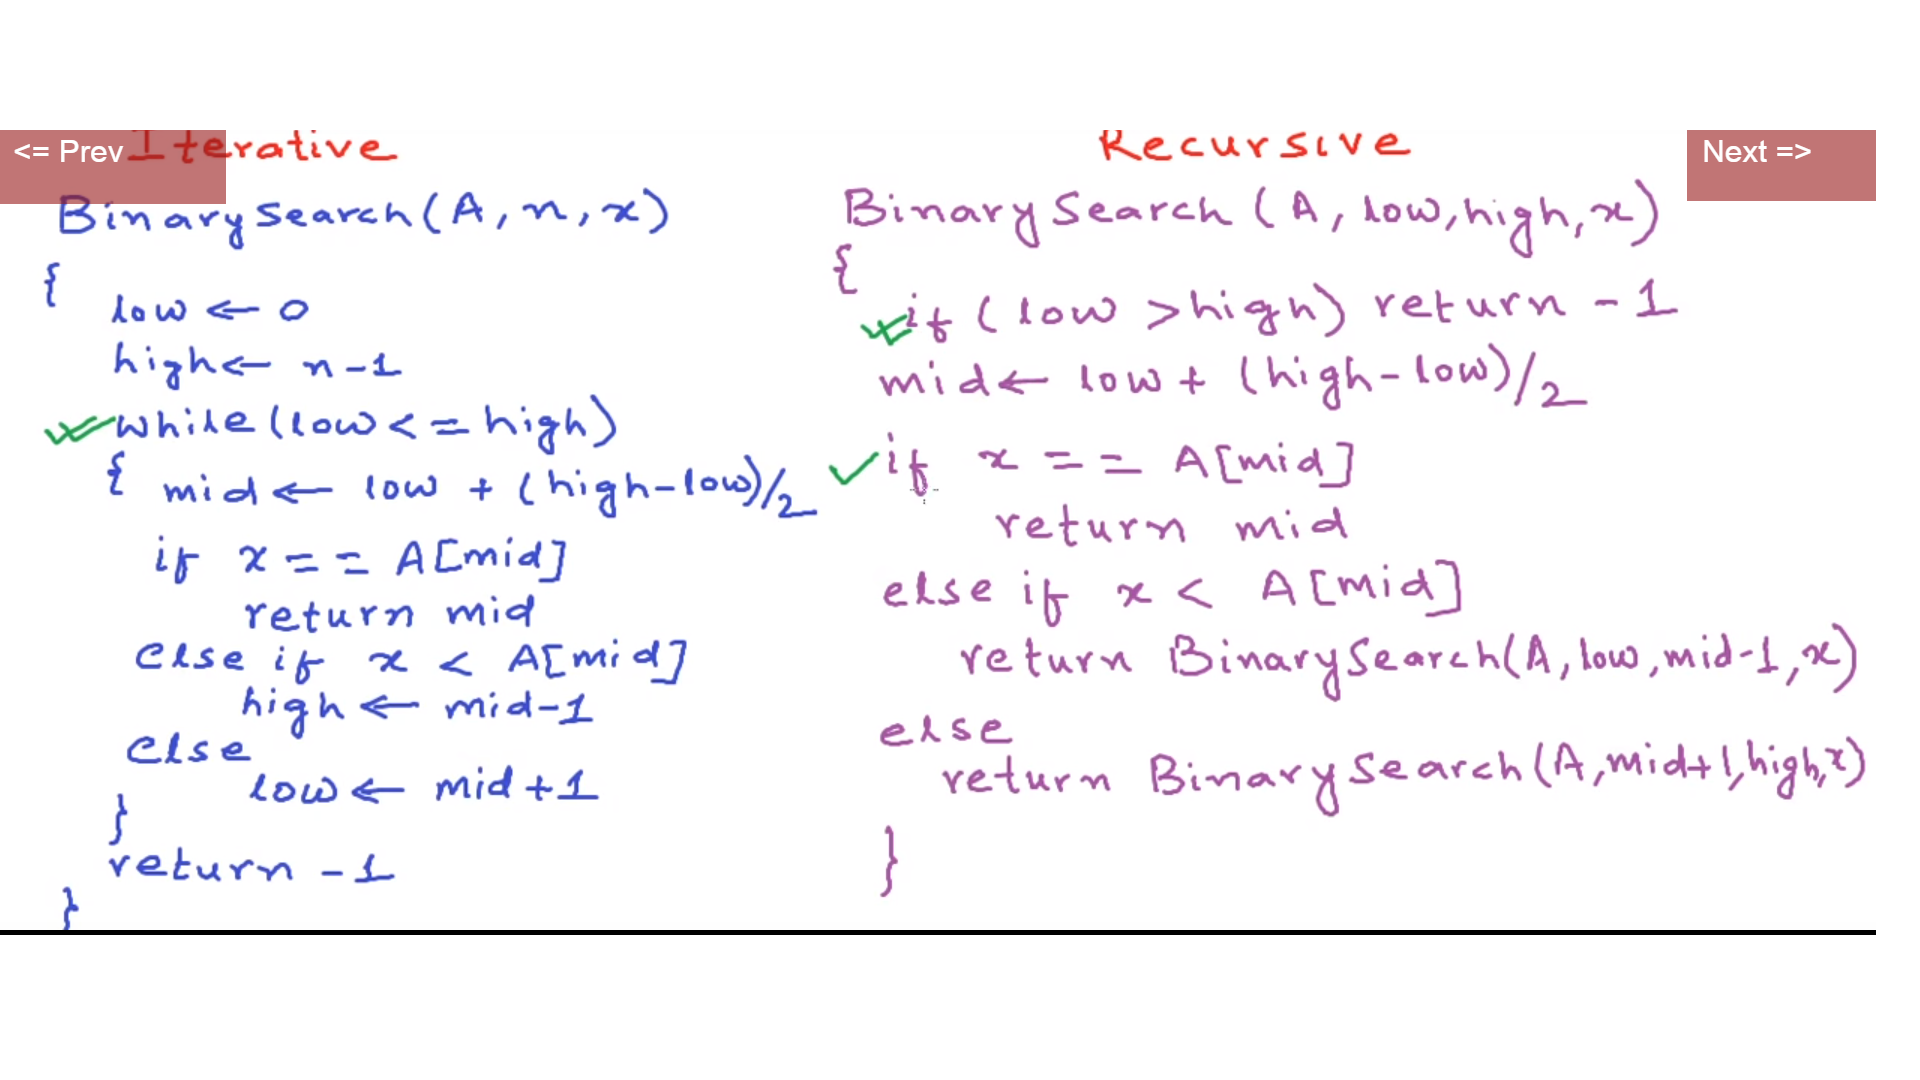 <= Prev
Iterative
BinarySearch(A, n, x)
{
low ← 0
high ← n-1
while(low <= high)
{ mid ← low + (high-low)/2
if x == A[mid]
return mid
else if x < A[mid]
high ← mid-1
else
low ← mid+1
}
return -1
}
Recursive
Next =>
BinarySearch(A, low, high, x)
{
if (low > high) return -1
mid ← low + (high-low)/2
if x == A[mid]
return mid
else if x < A[mid]
return BinarySearch(A, low, mid-1, x)
else
return BinarySearch(A, mid+1, high, x)
}